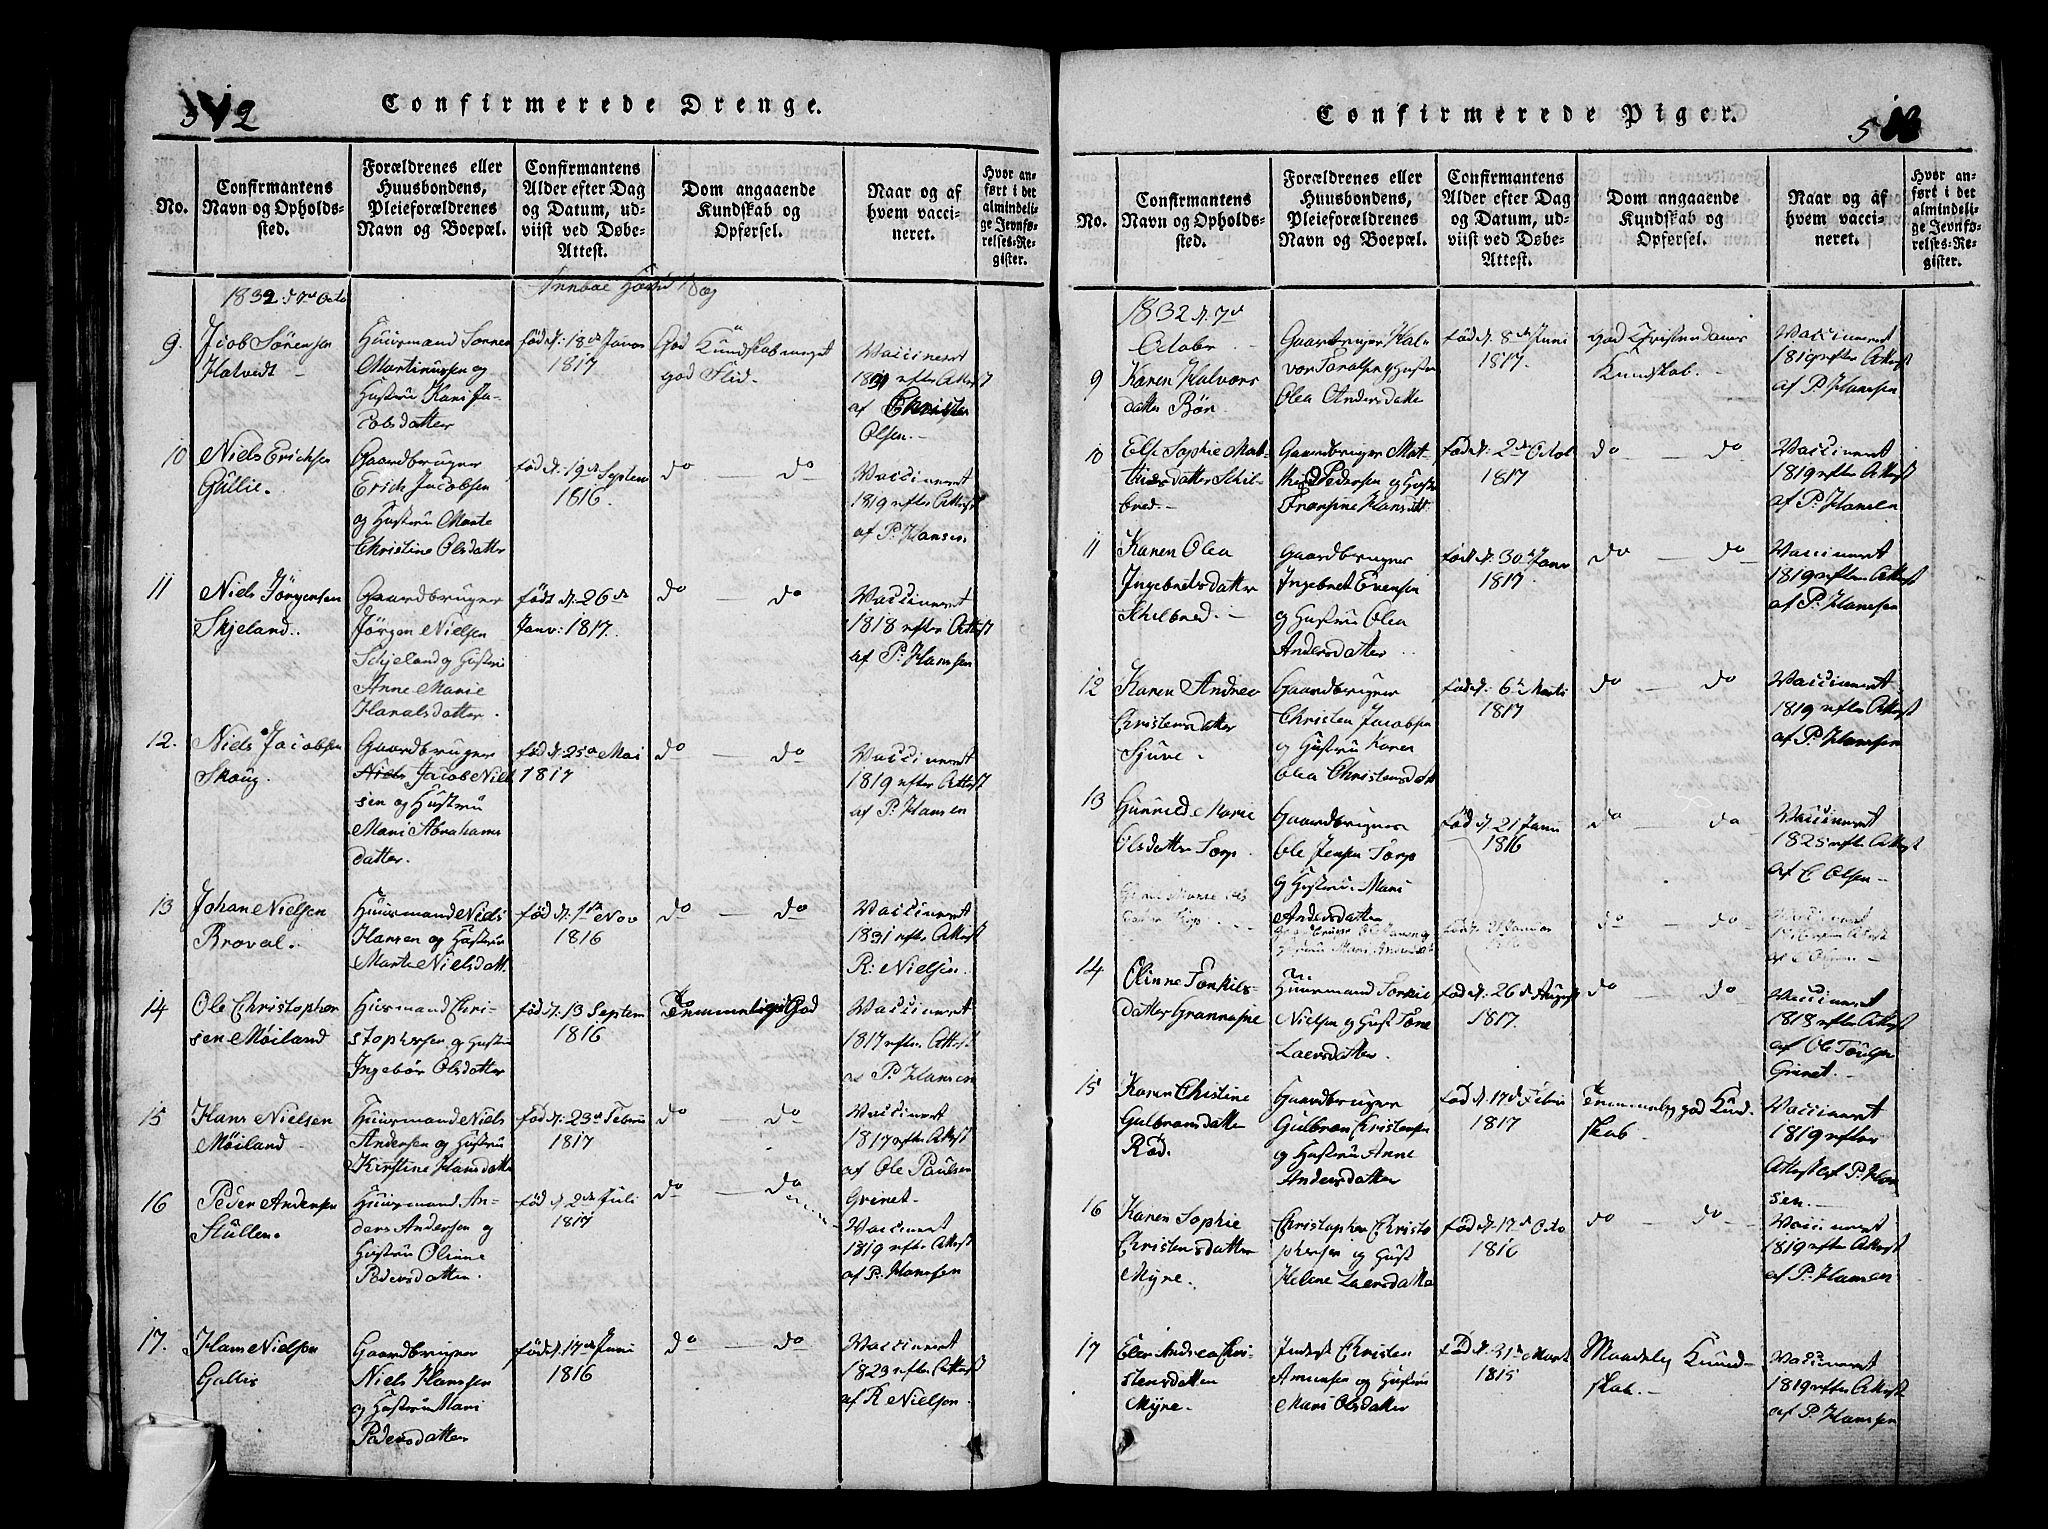 Confirmerede Drenge.
No.
Confirmantens
Navn og Opholds-
sted.
Forældrenes eller
Huusbondens,
Pleieforældrenes
Navn og Boepæl.
Confirmantens
Alder efter Dag
og Datum, ud-
viist ved Døbe-
Attest.
Dom angaaende
Kundskab og
Opførsel.
Naar og af
hvem vacci-
neret.
Hvor an-
ført i det
almindeli-
ge Jevnfø-
relses-Re-
gister.
1832 d 7de Octo
9.
Jacob Sørensen
Hatvedt
Huusmand Søren
Martinussen og
Hustru Kari Ja-
cobsdatter
fød d: 18de Janv
1817
God Kundskab meget
god Flid.
Vaccineret
1831 efter Attest
af Christen
Olsen.
10
Niels Erichsen
Gallie.
Gaardbruger
Erich Jacobsen
og Hustru Marte
Christine Olsdatter
fød d: 19de Septem
1816
do — do
Vaccineret
1819 efter Attest
af P. Hansen
11
Niels Jörgensen
Skjeland.
Gaardbruger
Jörgen Nielsen
Schjeland og Hustru
Anne Marie
Haralsdatter.
født d: 26de
Janv: 1817.
do — do
Vaccineret
1818 efter Attest
af P. Hansen
12.
Niels Jacobsen
Skoug.
Gaardbruger
Niels Jacob Niel
sen og Hustru
Mari Abrahams
datter.
fød d: 25de Mai
1817
do — do
Vaccineret
1819 efter Attest
af P. Hansen
13
Johan Nielsen
Broval.
Huusmand Niels
Hansen og Hustru
Marte Nielsdatt.
fød d: 1ste Nov
1816
do — do
Vaccineret
1831 efter Attest
R: Nielsen.
14
Ole Christopher
sen Möiland
Huusmand Chri-
stophersen og Hustru
Ingebör Olsdatter
fød d: 13 Septem
1816
Temmelig God
Vaccineret
1817 efter Attest
af P. Hansen
15
Hans Nielsen
Möiland
Huusmand Niels
Andersen og Hustru
Kirstine Hansdatte
fød d: 23de Febru
1817
do — do
Vaccineret
1817 efter Attest
af Ole Paulsen
Grinet.
16
Peder Andersen
Stullen.
Huusmand An-
ders Andersen og
Hustru Olinne
Pedersdatter.
fød d. 2de Juli
1817
do — do
Vaccineret
1819 efter Attest
af P. Hansen
17.
Hans Nielsen
Gallis
Gaardbruger
Niels Hansen
og Hustru Mari
Pedersdatter
fød d: 17de Juni
1816
do — do
Vaccineret
1823 efter Attest
af R Nielsen.
Confirmerede Piger.
No.
Confirmantens
Navn og Opholds-
sted.
Forældrenes eller
Huusbondens,
Pleieforældrenes
Navn og Boepæl.
Confirmantens
Alder efter Dag
og Datum, ud-
viist ved Døbe-
Attest.
Dom angaaende
Kundskab og
Opførsel.
Naar og af
hvem vacci-
neret.
Hvor an-
ført i det
almindeli-
ge Jevnfø-
relses-Re-
gister.
1832 d. 7de
Octobr
9
Karen Halvors
datter Bör
Gaardbruger Hal-
vor Taralsen og Hustru
Olea Andersdatte
fød d. 8de Juni
1817.
god Christendoms
Kundskab.
Vaccineret
1819 efter Attest
af P. Hansen
10
Else Sophie Mat-
thisdatter Schil-
bred.
Gaardbruger Mat-
thias Pedersen og Hustru
Fransine Hansdtt
fød d: 2de Octob
1817
do — do
Vaccineret
1819 efter Attest
af P. Hansen
11
Karen Olea
Ingebretsdatter
Schilbred.
Gaardbruger
Ingebret Evensen
og Hustru Olea
Andersdatter
født d. 30de Janv
1817
do — do
Vaccineret
1819 efter Attest
af P. Hansen
12
Karen Andrea
Christensdatter
Sjuve.
Gaardbruger
Christen Jacobsen
og Hustru Karen
Olea Christensdatt
fød d: 6te Marti
1817
do — do
Vaccineret
1819 efter Attest
af P. Hansen
13
Gunnild Marie
Olsdatter Torp
Gaardbruger
Ole Jensen Torp
og Hustru Mari
Andersdatter
fød d. 21 Janu
1816
do — do
Vaccineret
1825 efter Attest
af C Olsen
14
Olinne Torkils-
datter Grannesne
Huusmand Torkil
Nielsen og Hust Tone
Laersdatter.
fød d: 26de August
1817.
do — do
Vaccineret
1818 efter Attest
af Ole Poulsen
Grinet.
15
Karen Christine
Gulbransdatte
Röd.
Gaardbruger
Gulbran Christensen
og Hustru Anne
Andersdatter
fød d. 17de Febru
1817
Temmelig god Kund
skab.
Vaccineret
1819 efter
Attest af P. Han
sen.
16
Karen Sophie
Christensdatter
Myre.
Christopher Christo
phersen og Hust
Helene Laersdatte
fød d. 17de Octo
1816
do — do
Vaccineret
1819 efter Attest
af P. Hansen
17
Elen Andrea Chri-
stensdatter
Myre.
Inderst Christen
og Hustru
Mari Olsdatter
Fød d. 31te Mart
1815
Maadelig Kund-
skab.
Vaccineret
1819 efter Attest
af P. Hansen